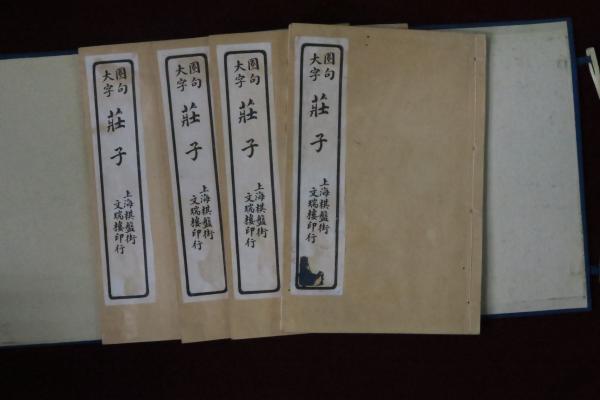 圈句
大字
莊子
上海棋盤街
文瑞樓印行
圈句
大字
莊子
上海棋盤街
文瑞樓印行
圈句
大字
莊子
上海棋盤街
文瑞樓印行
圈句
大字
莊子
上海棋盤街
文瑞樓印行